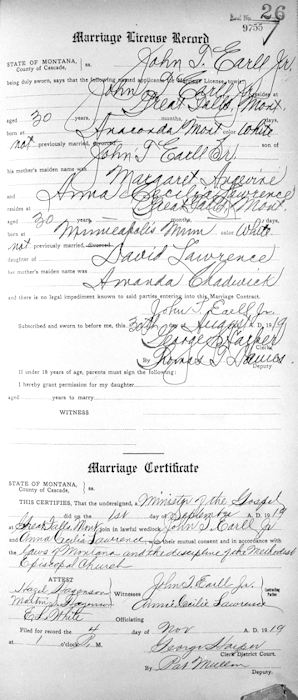 Real No. 26
9755
Marriage License Record
STATE OF MONTANA, } ss.
County of Cascade,
John T. Earll Jr.
being duly sworn, says that the following named applicants for Marriage License, to-wit:
John T. Earll Jr. resides at
Great Falls, Mont.
aged 30 years, months, days,
born at Anaconda Mont color White
not previously married, divorced
John T Earll Sr.
his mother's maiden name was Margaret
and Anna Cecilia Lawrence
resides at Great Falls Mont
aged 30 years, months, days,
born at Minneapolis Minn color White
not previously married, divorced
daughter of David Lawrence
her mother's maiden name was
Amanda Chadwick
and there is no legal impediment known to said parties entering into this Marriage Contract.
John T. Earll Jr.
Subscribed and sworn to before me, this 30th day August A. D. 1919
George Harper
Clerk.
By Thomas J Davies.
Deputy.
If under 18 years of age, parents must sign the following:
I hereby grant permission for my daughter
aged years to marry
WITNESS
Marriage Certificate
STATE OF MONTANA, } ss.
County of Cascade,
THIS CERTIFIES, That the undersigned, a Minister of the Gospel
did on the 1st day of September A. D. 1919
at Great Falls Mont join in lawful wedlock John T. Earll Jr
and Anna Cecilia Lawrence with their mutual consent and in accordance with the
laws of Montana and the discipline of the Methodist
Episcopal Church
ATTEST
Hazel } Witnesses John T Earll Jr. } Contracting Parties
Annie Cecilie Lawrence
E. L. White Officiating
Filed for record the 4 day of Nov 1919
at 1 o'clock P. M. George Harper
Clerk District Court.
By Pat Mullen
Deputy.